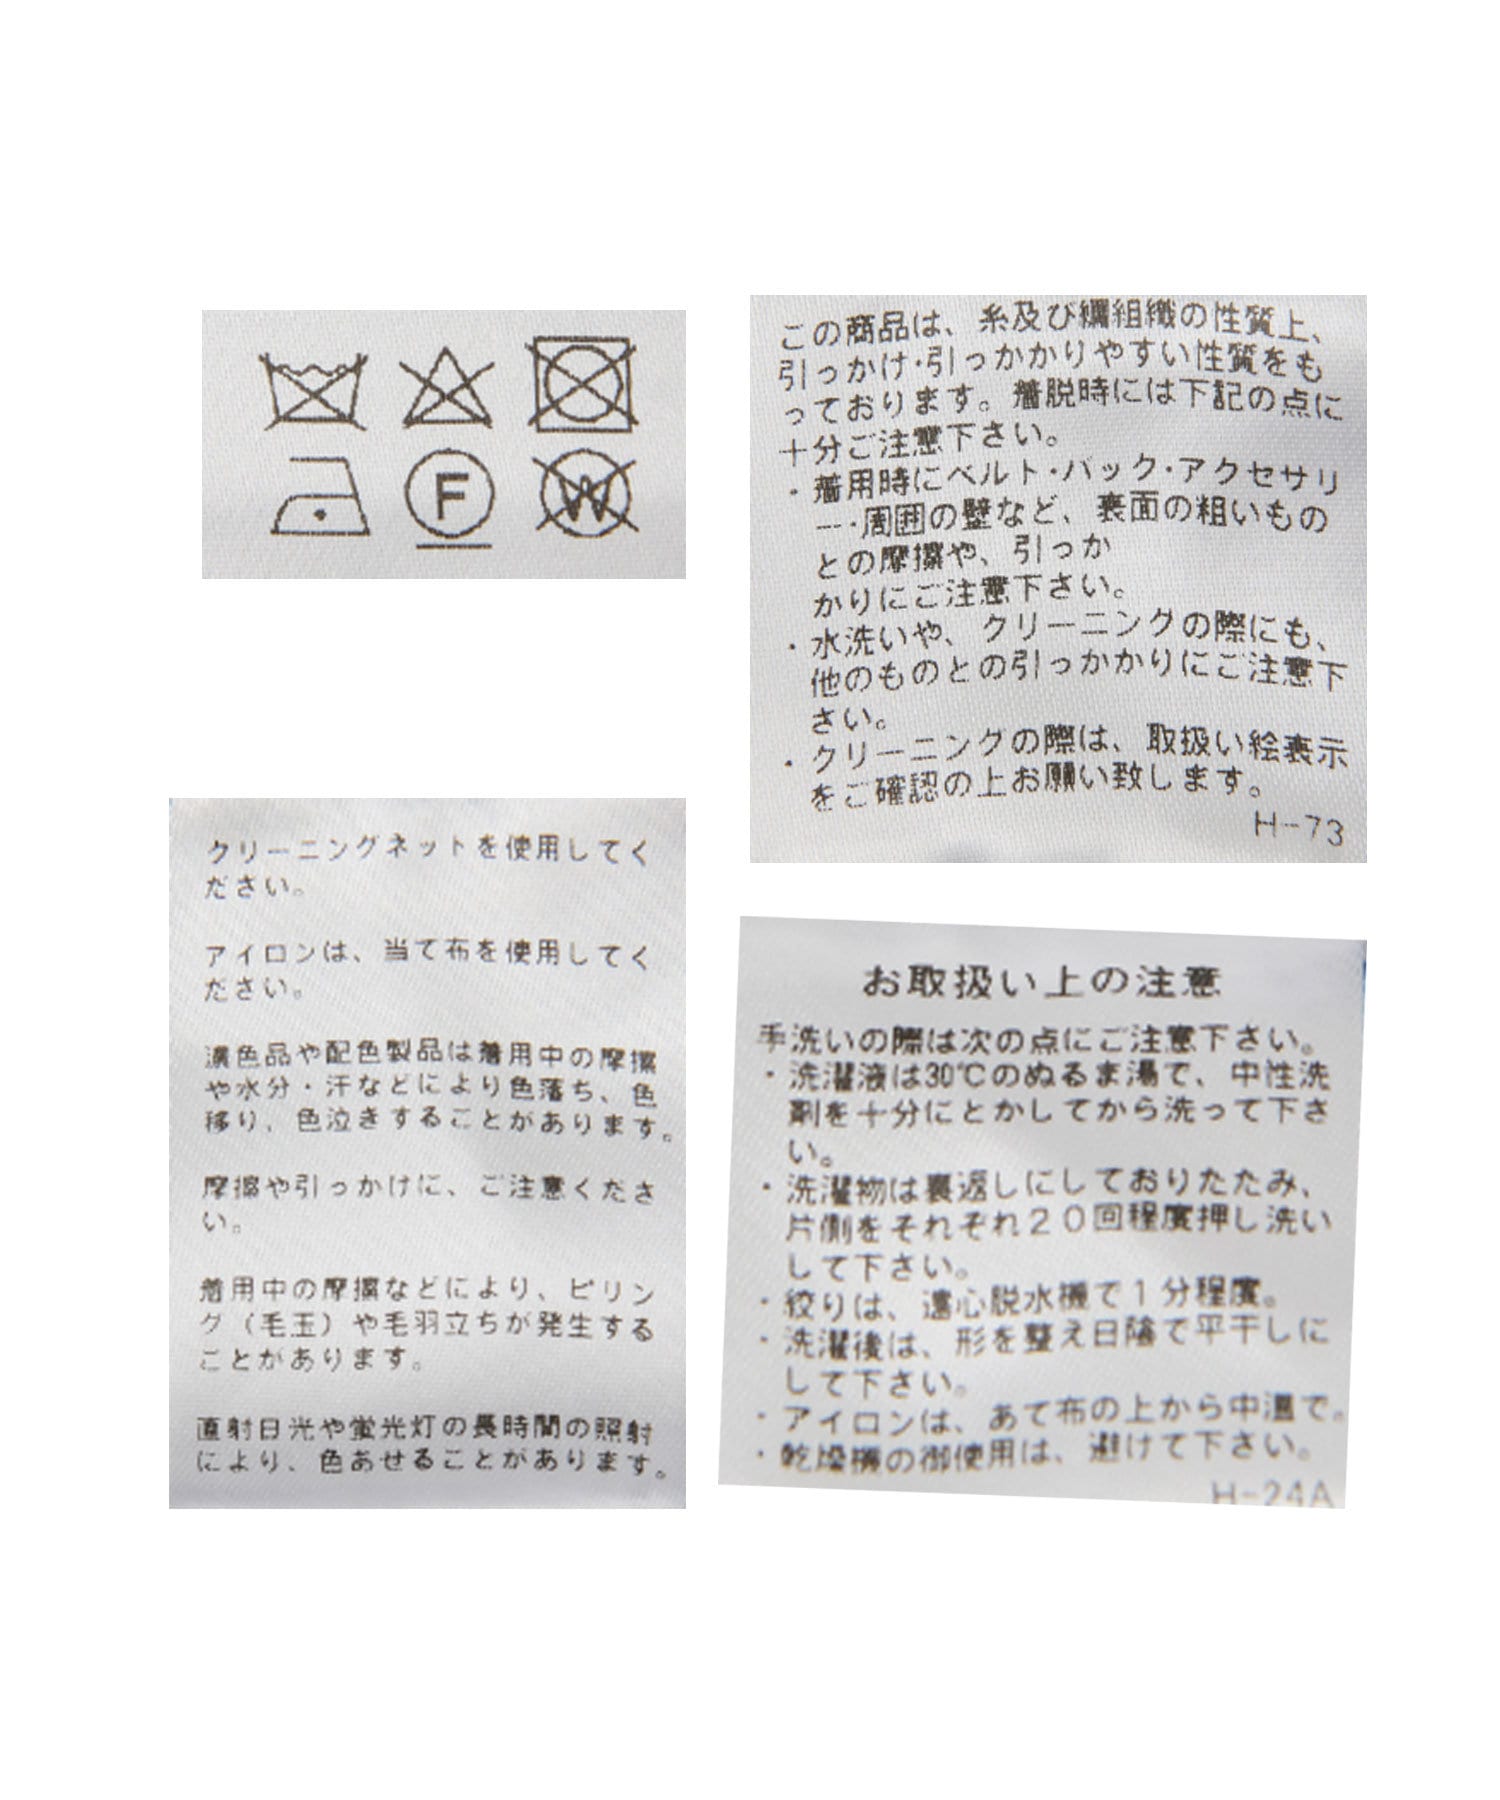 F
W
この商品は、糸及び編組織の性質上、
引っかけ・引っかかりやすい性質をも
っております。着脱時には下記の点に
十分ご注意下さい。
・着用時にベルト・バック・アクセサリ
ー・周囲の壁など、表面の粗いもの
との摩擦や、引っか
かりにご注意下さい。
・水洗いや、クリーニングの際にも、
他のものとの引っかかりにご注意下
さい。
・クリーニングの際は、取扱い絵表示
をご確認の上お願い致します。
H-73
クリーニングネットを使用してく
ださい。
アイロンは、当て布を使用してく
ださい。
濃色品や配色製品は着用中の摩擦
や水分・汗などにより色落ち、色
移り、色泣きすることがあります。
摩擦や引っかけに、ご注意くださ
い。
着用中の摩擦などにより、ピリン
グ（毛玉）や毛羽立ちが発生する
ことがあります。
直射日光や蛍光灯の長時間の照射
により、色あせることがあります。
お取扱い上の注意
手洗いの際は次の点にご注意下さい。
・洗濯液は30℃のぬるま湯で、中性洗
剤を十分にとかしてから洗って下さ
い。
・洗濯物は裏返しにしておりたたみ、
片側をそれぞれ20回程度押し洗い
して下さい。
・絞りは、遠心脱水機で1分程度。
・洗濯後は、形を整え日陰で平干しに
して下さい。
・アイロンは、あて布の上から中温で。
・乾燥機の御使用は、避けて下さい。
H-24A